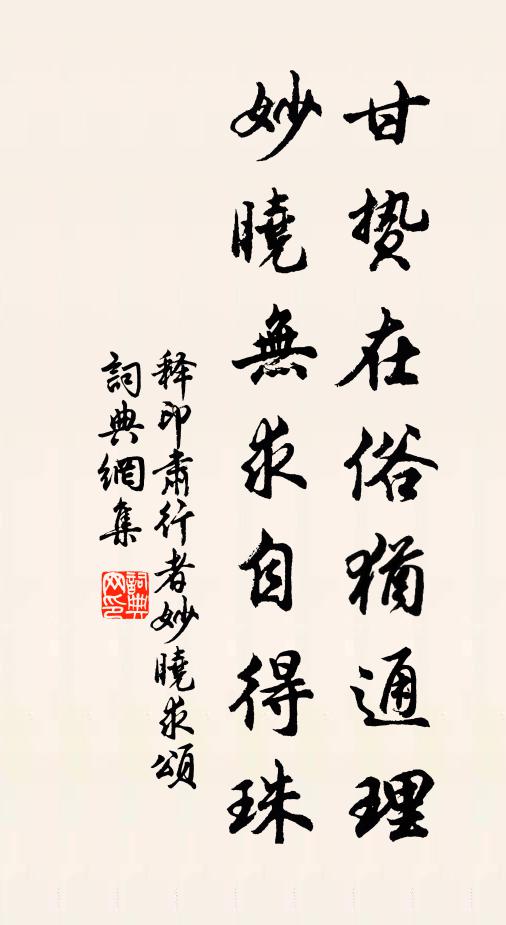 甘贽在俗猶通理
妙曉無求自得珠
释印肅行者妙曉求頌
詞典網集
詞典网印